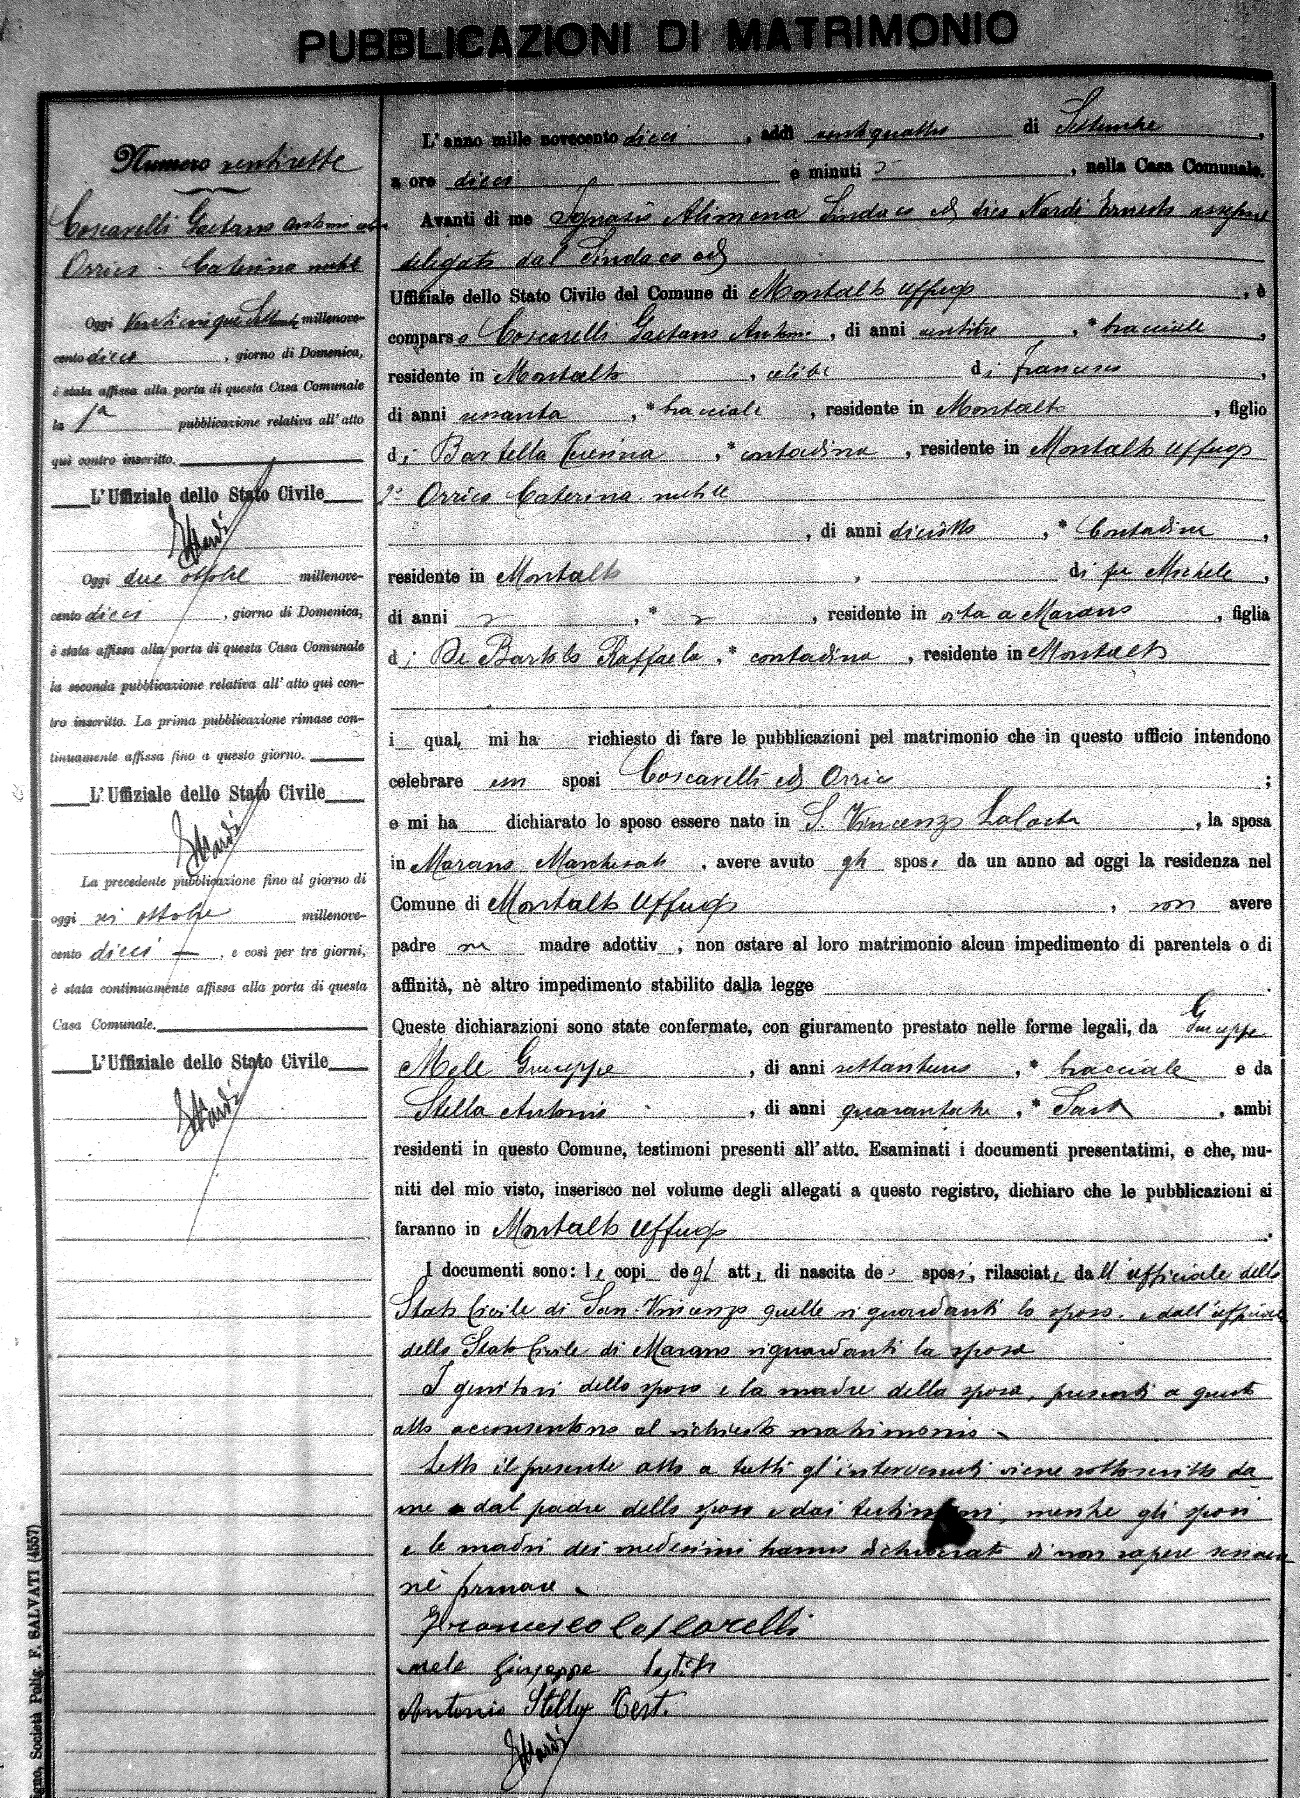 PUBBLICAZIONI DI MATRIMONIO
Numero ventisette
Coscarelli Gaetano Antonio
Orrico Caterina nubile
Oggi Venticinque Settembre millenove-
cento dieci, giorno di Domenica,
è stata affissa alla porta di questa Casa Comunale
la 1ª pubblicazione relativa all'atto
quì contro inscritto.
L'Uffiziale dello Stato Civile
ENardi
Oggi due ottobre millenove-
cento dieci, giorno di Domenica,
è stata affissa alla porta di questa Casa Comunale
la seconda pubblicazione relativa all'atto quì con-
tro inscritto. La prima pubblicazione rimase con-
tinuamente affissa fino a questo giorno.
L'Uffiziale dello Stato Civile
ENardi
La precedente pubblicazione fino al giorno di
oggi sei ottobre millenove-
cento dieci, e così per tre giorni,
è stata continuamente affissa alla porta di questa
Casa Comunale.
L'Uffiziale dello Stato Civile
ENardi
L'anno mille novecento dieci, addì ventiquattro di Settembre,
a ore dieci e minuti, nella Casa Comunale.
Avanti di me Ignazio Alimena Sindaco ed dico Nardi Ernesto assessore
delegato dal Sindaco ed
Uffiziale dello Stato Civile del Comune di Montalto Uffugo, è
comparso Coscarelli Gaetano Antonio, di anni ventitre, * bracciale,
residente in Montalto, celibe di Francesco,
di anni sessanta, * bracciale, residente in Montalto, figlio
di Bartella, * contadina, residente in Montalto Uffugo
2° Orrico Caterina nubile
, di anni diciotto, * Contadina,
residente in Montalto, di fu Michele,
di anni, *, residente in vita a Marano, figlia
di De Bartolo Raffaela, * contadina, residente in Montalto
i qual, mi ha richiesto di fare le pubblicazioni pel matrimonio che in questo ufficio intendono
celebrare essi sposi Coscarelli ed Orrico;
e mi ha dichiarato lo sposo essere nato in S. Vincenzo LaCosta, la sposa
in Marano Marchesato, avere avuto gli sposi da un anno ad oggi la residenza nel
Comune di Montalto Uffugo, non avere
padre ne madre adottiv, non ostare al loro matrimonio alcun impedimento di parentela o di
affinità, nè altro impedimento stabilito dalla legge.
Queste dichiarazioni sono state confermate, con giuramento prestato nelle forme legali, da Giuseppe
Mele Giuseppe, di anni settantuno, * bracciale e da
Stella Antonio, di anni, * Sarto, ambi
residenti in questo Comune, testimoni presenti all'atto. Esaminati i documenti presentatimi, e che, mu-
niti del mio visto, inserisco nel volume degli allegati a questo registro, dichiaro che le pubblicazioni si
faranno in Montalto Uffugo.
I documenti sono: le copi degl att, di nascita de sposi, rilasciate dall'ufficiale dello
Stato Civile di San Vincenzo quelle riguardanti lo sposo e dall'ufficiale
dello Stato Civile di Marano riguardanti la sposa
I genitori dello sposo e la madre della sposa, presenti a questo
atto acconsentono al richiesto matrimonio.
Letto il presente atto a tutti gl'intervenuti viene sottoscritto da
me dal padre dello sposo e dai testimoni, mentre gli sposi
e le madri dei medesimi hanno dichiarato di non sapere scrivere
nè firmare.
Francesco Coscarelli
mele Giuseppe
Antonio Stella Test.
ENardi
Società Polig. F. SALVATI (4557)